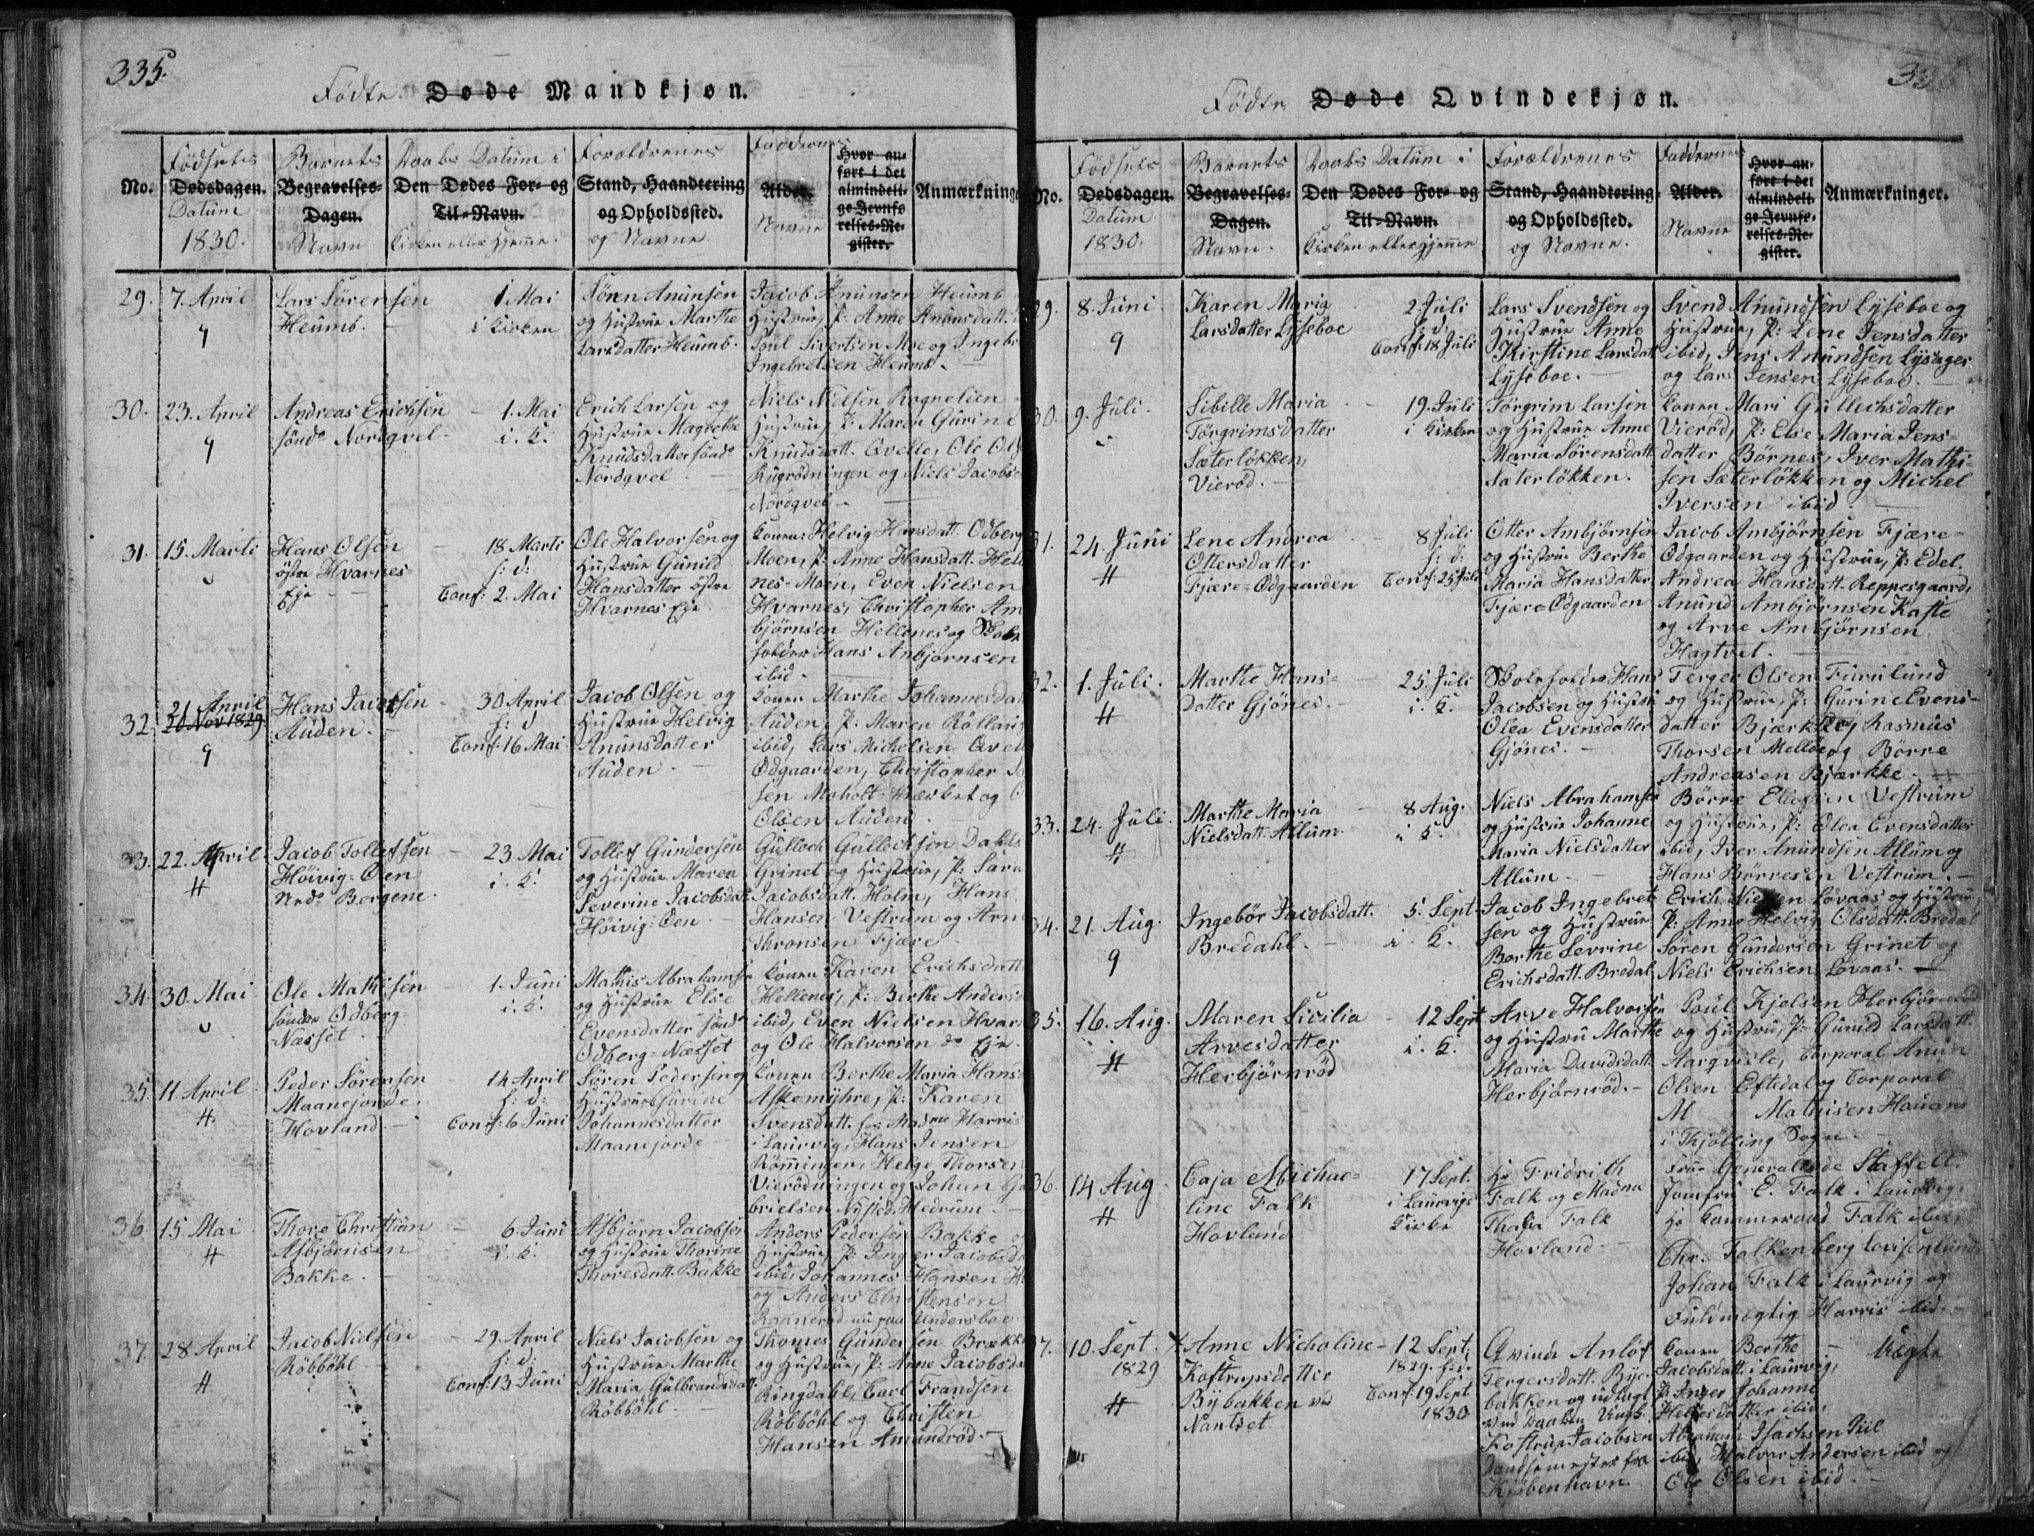 335.
Fødte Døde Mandkjøn.
No.
Fødsels
Dødsdagen.
Datum
1830.
Barnets
Begravelses-
Dagen.
Navn
Daabs Datum i
Den Dødes For- og
Til-Navn.
Kirken eller hjemme.
Forældrenes
Stand, Haandtering
og Opholdssted.
og Navne.
Faddernes
Alder.
Navne
Hvor an-
ført i det
almindeli-
ge Jevnfø
relses-Re-
gister.
Anmærkninge
29.
7. April
Lars Sørensen
Heumb.
1 Mai
i Kirken
Sören Anunsen
og Hustrue Marthe
Larsdatter Heumb.
Jacob Anunsen Heumb
Hustrue, P: Anne Anunsdatt.
Poul Sivertsen Moe og Ingebr
Ingebretsen Heumb.
30.
23. April
Andreas Erichsen
sönd Nordqvel
1. Mai
i. K.
Erich Larsen og
Hustrue Magrethe
Knudsdatter sönd
Nordqvel
Niels Nielsen Rognelien
Hustrue, P: Maren Gurine
Knudsdatt. Qvelle, Ole Ols
Rugrödningen og Niels Jacobs
Nordqvel
31.
15. Marti
Hans Olsen
östre Hvarnes
Eje
18 Marti
h: d:
Conf: 2. Mai
Ole Halvorsen og
Hustrue Gunild
Hansdatter östre
Hvarnes Eje
Konen Helvig Hansdatt. Odberg
Moen, P: Anne Hansdatt. Hell
nes-Moen, Even Nielsen
Hvarnes, Christopher Am
björnsen Hellenes og Skole
holder Hans Anbjörnsen
ibid.
32.
21 April
20 Nov 1829
Hans Jacobsen
Auden.
30 April
h: d
Conf: 16 Mai
Jacob Olsen og
Hustrue Helvig
Anunsdatter
Auden.
Konen Marthe Johannesdat
Auden, P: Maren
ibid, Lars Michelsen Qvel
Odgaarden, Christopher
sen Moholt og
Olsen Auden
33.
22. April
Jacob Tollefsen
Höivig-Öen
Nedr Bergene.
23 Mai
i. K.
Tollef Gundersen
og Hustrue Maren
Severine Jacobsdat
Höivig-Öen
Gulloch Gullochsen Dahls
Grinet og Hustrue, P: Sara
Jacobsdatt. Holm, Hans
Hansen Vestrum og Arn
Thronsen Fjære
34.
30. Mai
Ole Mathisen
söndre Odberg-
Næsset
1. Juni
i. K.
Mathis Abrahamsen
og Hustrue Else
Evensdatter sönd
Odberg-Næsset
Konen Karen Erichsdatt
Hellenes, P: Birthe Anders
ibid, Even Nielsen Hvar
og Ole Halvorsen do Eje
35.
11. April
Peder Sörensen
Maanejorde.
Hovland
14 April
h: d:
Conf: 6 Juni
Sören Pedersen og
Hustrue Gjörine
Johannesdatter
Maanejorde
Konen Berthe Maria Hans
Askemyhre, P: Karen
Svensdatt. hos Madme Harris
i Laurvig, Hans Jensen
Römminger, Helge Thorsen
Vierödningen og Johan Ga
brielsen Nysted, Hedrum.
36.
15. Mai
Thore Christian
Asbjörnsen
Bakke.
6 Juni
i. K.
Asbjörn Jacobsen
og Hustrue Thorine
Thoresdatt. Bakke
Anders Pedersen Bakke
Hustrue, P: Inger Jacobsd
ibid, Johannes Hansen
og Anders Christensen
Raanerød nu paa Andersboe
37.
28 April
Jacob Nielsen
Röbböhl
29. April
h: d:
Conf: 13 Juni
Niels Jacobsen og
Hustrue Marthe
Maria Gulbrandsdatt
Röbböhl.
Thomes Gundersen Brekk
og Hustrue, P: Anne Jacobsda
Ringdahl, Carl Frandsen
Röbböhl og Christen
Hansen Amundröd.
Fødte Døde Qvindekjøn.
No.
Fødsels
Dødsdagen.
Datum
1830.
Barnets
Begravelses-
Dagen.
Navn.
Daabs Datum i
Den Dødes For- og
Til-Navn.
Kirken eller hjemme
Forældrenes
Stand, Haandtering
og Opholdssted.
og Navne.
Faddernes
Alder.
Navne
Hvor an-
ført i det
almindeli-
ge Jevnfø-
relses-Re-
gister.
Anmærkninger.
29.
8. Juni
Karen Maria
Larsdatter Lyseboe
2. Juli
h: d:
Conf: 18 Juli
Lars Svendsen og
Hustrue Anne
Kirstine Larsdatt
Lyseboe.
Svend Amundsen Lyseboe og
Hustrue, P: Lene Jensdatter
ibid, Jens Amundsen Lysager
og Lars Jensen Lyseboe.
30.
9. Juli.
Sibille Maria
Törgrimsdatter
Sæterlökken,
Vieröd.
19. Juli
i Kirken
Törgrim Larsen
og Hustrue Anne
Maria Sörensdatt
Sæterlökken.
Konen Mari Gullechsdatter
Vieröd, P: Else Maria Jens-
datter Börnes, Iver Mathi-
sen Sæterlökken og Michel
Iversen ibid
31.
24. Juni
Lene Andrea
Ottersdatter
Fjære-Odgaarden
8 Juli
h: d:
Conf: 25 Juli
Otter Ambjørnsen
og Hustrue Berthe
Maria Hansdatter
Fjære-Odgaarden
Jacob Ambjørnsen Fjære-
Odgaarden og Hustrue, P: Edel
Andrea Hansdatt. Reppesgaard,
Anund Ambjørnsen Kaste
og Arve Ambjørnsen
Hagtvet.
32.
1. Juli.
Marthe Hans-
datter Gjönes.
25. Juli
i. K.
Skoleholder Hans
Jacobsen og Hustru
Olea Evensdatter
Gjönes.
Terger Olsen Furulund
og Hustrue, P: Gurine Evens-
datter Bjærkke, Rasmus
Thorsen Melloe og Börre
Andreasen Bjærkke.
33.
24. Juli.
Marthe Maria
Nielsdatt. Allum
8 Aug.
i K.
Niels Abrahamsen
og Hustrue Johanne
Maria Nielsdatter
Allum.
Börre Ellefsen Vestrum
og Hustrue, P: Olea Evensdatter
ibid, Iver Anundsen Allum og
Hans Börresen Vestrum.
34.
21. Aug.
Ingebör Jacobsdatt.
Bredahl.
5. Sept.
i. K.
Jacob Ingebret
sen og Hustrue
Berthe Sevrine
Erichsdatt. Bredal
Erich Nielsen Lövaas og Hustrue
P: Anne Helvig Olsdatt. Bredal
Sören Gundersen Grinet og
Niels Erichsen Lövaas.
35.
16. Aug.
Maren Sicilia
Arvesdatter
Herbjörnröd
12 Sept
i. K.
Arve Halvorsen
og Hustru Marthe
Maria Davidsdatt
Herbjörnröd.
Poul Kjelsen Herbjörnröd
og Hustru, P: Gunild Larsdatt.
Aarqvisle, Corporal Anun
Olsen Eftedal og Corporal
M Mathisen Hauan
i Thjölling Sogn.
36.
14 Aug.
Caja Michae-
line Falk
Hovland
17 Sept.
i Laurvigs
Kirke
Hr Fridrith
Falk og Madm
Thalia Falk
Hovland
Frue Generalinde Staffelt.
Jomfru E. Falk i Laurvig,
Hr Kammerraad Falk ibid,
Chr. Falkenberg Lovisenlund,
Johan Falk i Laurvig og
Fuldmægtig Harris ibid.
37.
10. Sept.
1829
Anne Nicholine
Kostrupsdatter
Bybakken ved
Nantset
12 Sept.
1829. h: d:
Conf: 19 Sept
1830
Qvinde
Tergersdatt. Bye-
bakken og udlagt
ved Daaben Ungk.
Kostrup Jacobsen
Dandsemester fra
Kjøbenhavn
Konen Berthe
Jacobsdatt. i Laurvig,
P: Inger Johanne
Hellesdatter ibid,
Abraham Isachsen Piil
ibid, Halvor Andersen ibid og
Ole Olsen ibid.
Uægte